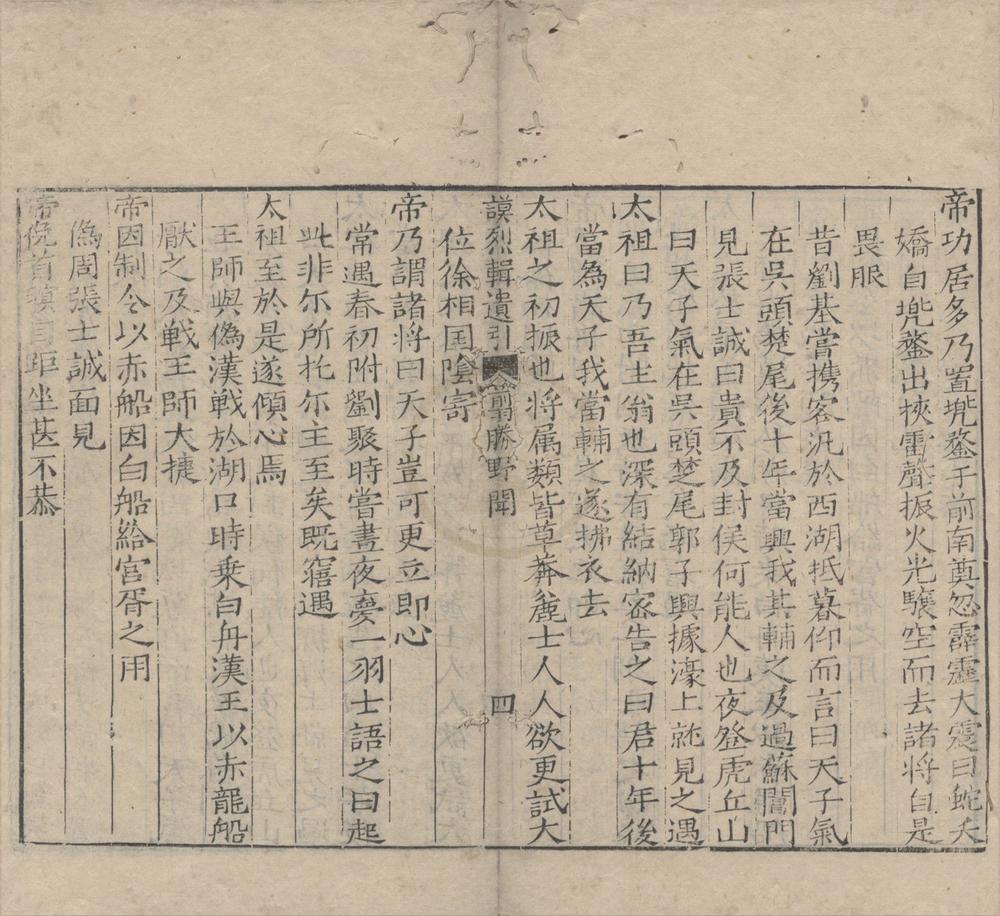 帝功居多乃置兠鍪于前南奠忽霹靂大震曰蛇夭
嬌自兠鍪出挾雷聲振火光驤空而去諸將自是
畏服
昔劉基嘗携客汎於西湖抵暮仰而言曰天子氣
在吳頭楚尾後十年當興我其輔之及過蘇閶門
見張士誠曰貴不及封侯何能人也夜登虎丘山
曰天子氣在吳頭楚尾郭子興據濠上就見之遇
太祖曰乃吾主翁也深有結納密告之曰君十年後
當為天子我當輔之遂拂衣去
太祖之初振也将属類皆草莽麄士人人欲更試大
謨烈輯遺引 翦勝野聞 四
位徐相国陰寄
帝乃謂諸将曰天子豈可更立即心
常遇春初附劉聚時嘗晝夜夢一羽士語之曰起
此非尓所托尓主至矣既寤遇
太祖至於是遂傾心焉
王師與偽漢戦於湖口時乗白舟漢王以赤龍船
厭之及戦王師大捷
帝因制令以赤船因白船給官胥之用
偽周張士誠面見
帝俛首瞋目距坐甚不恭